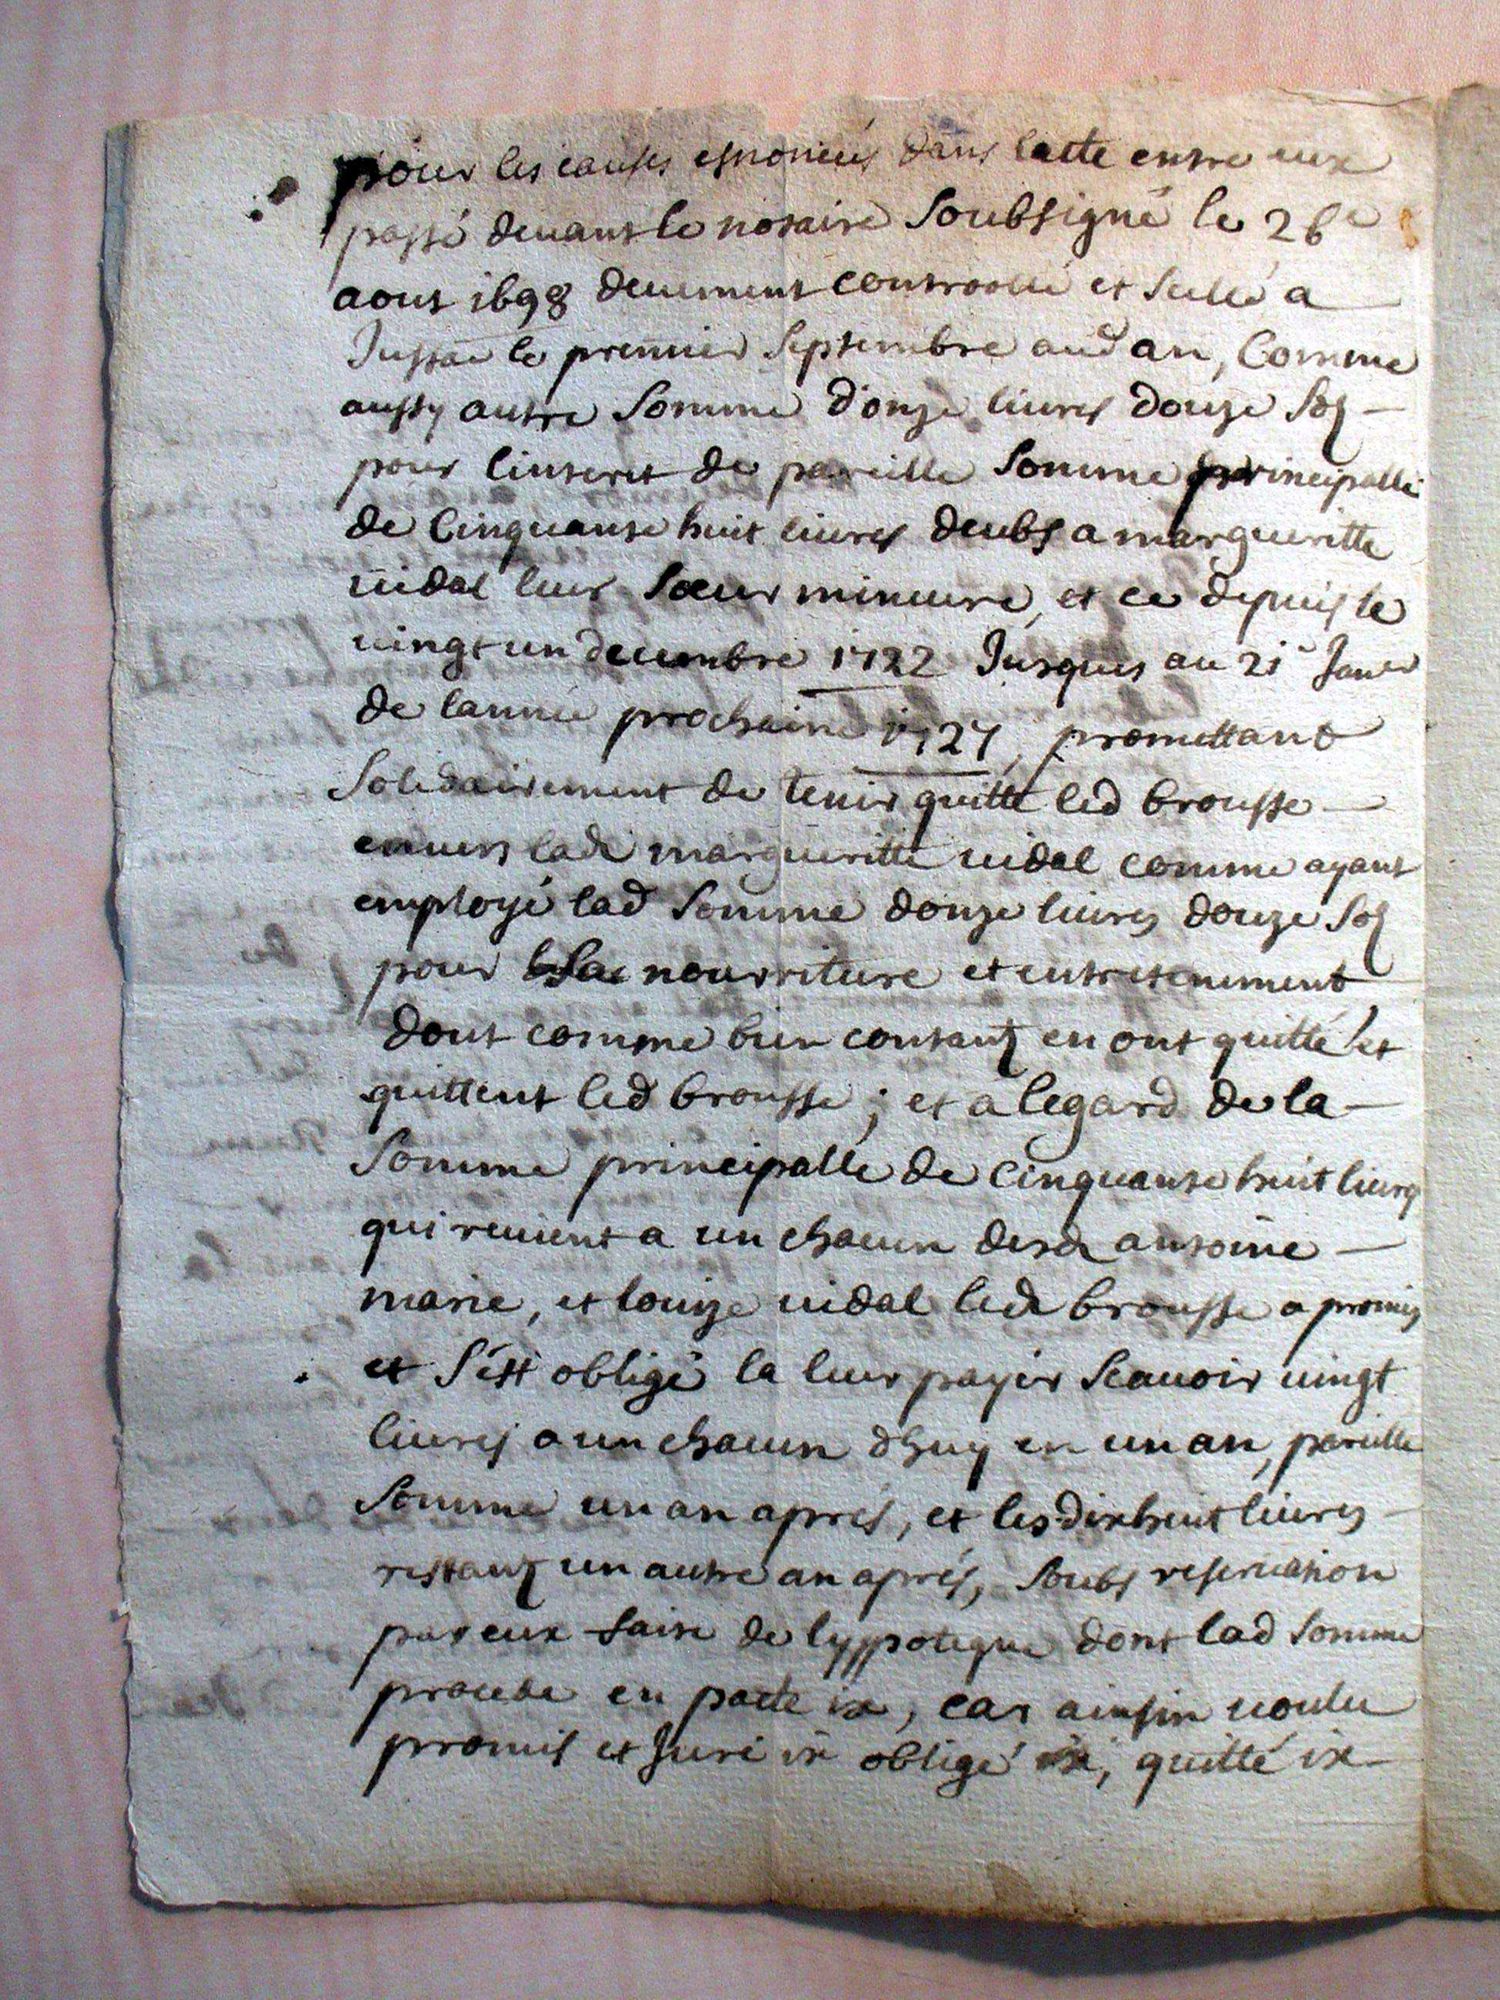 pour les causes esnoncés dans lacte entre eux
passé devant le notaire Soubsigné le 26e
aout 1698 deuement controollé et Scellé a
Jussac le premier Septembre aud an, Comme
aussy autre Somme d'onze livres douze Sols
pour linteret de pareille Somme principalle
de Cinquante huit livres deubs a margueritte
vidal leur Sœur mineure, et ce depuis le
vingt un decembre 1722 Jusques au 21e Janer
de lannée prochaine 1727, promettant
Solidairement de tenir quitte led brousse
envers lade margueritte vidal comme ayant
employé lad Somme donze livres douze Sols
pour Sa nourriture et entretenement
dont comme bien contantz en ont quitté et
quittent led brousse; et a legard de la
Somme principalle de Cinquante huit livres
qui revient a un chacun desd antoine
marie, et louize vidal led brousse a promis
et S'est obligé la leur payer Scavoir vingt
livres a un chacun dhuy en un an, pareille
Somme un an aprés, et les dixhuit livres
restantz un autre an aprés, Soubs reservation
par eux faite de lyppoteque dont lad Somme
procede en pacte ex, car ainsin voulu
promis et Juré ex obligé ex, quitté ex